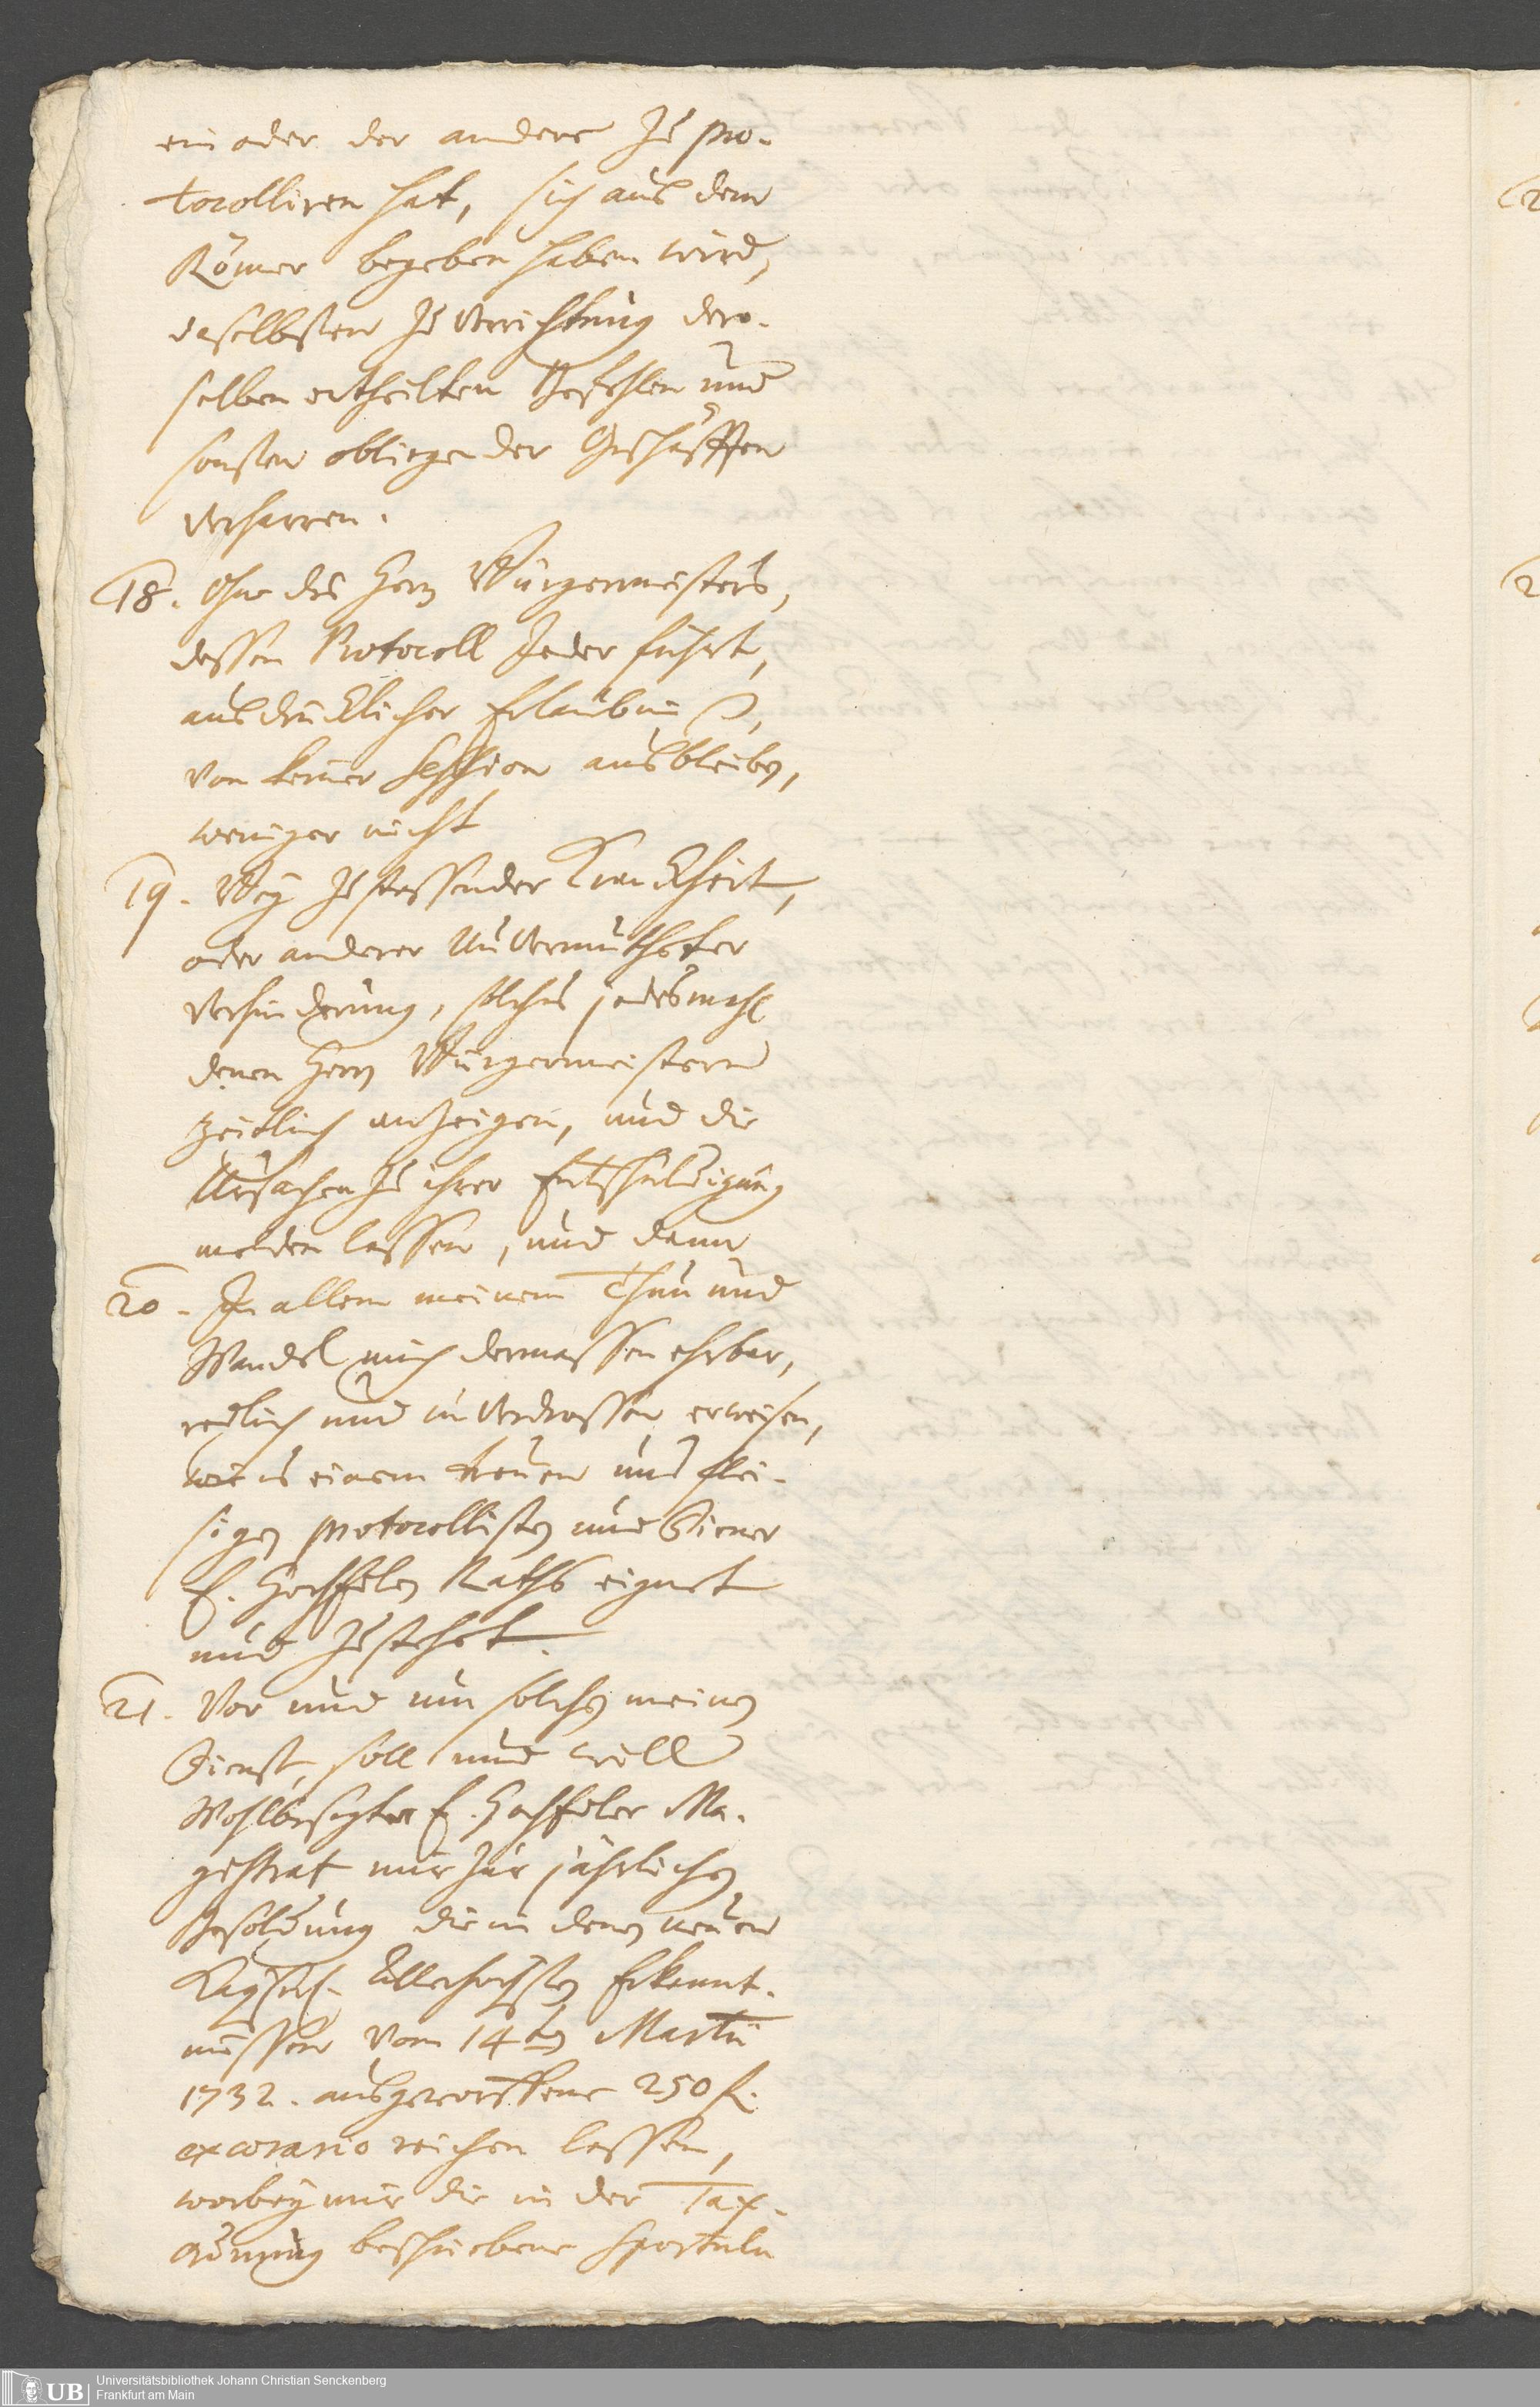 ein oder der andere zu pro-
tocolliren hat, sich aus dem
Römer begeben haben wird,
daselbsten zu Verrichtung dero-
selben ertheilten Befehlen und
sonsten obliegender Geschäfften
verharren.
18. Ohne des Herrn Bürgermeisters,
dessen Protocoll Jeder führt,
ausdrücklicher Erlaubniß,
von keiner Session ausbleiben,
weniger nicht
19. Bey zustossender Kranckheit,
oder anderer Unvermutheter
Verhinderung, solches jedesmahl
denen Herrn Bürgermeistern
zeitlich anzeigen, und die
Ursachen zu ihrer Entschuldigung
melden lassen, und dann
20. In allem meinem Thun und
Wandel mich dermassen ehrbar,
redlich und unverdrossen erweisen,
wie es einem treuen und flei-
sigen protocollisten und Diener
E. Hochedlen Raths eignet
und zustehet.
21. Vor und um solchen meinen
Dienst, soll und will
Wohlbesagter E. Hochedler Ma-
gistrat mir zur jährlichen
Besoldung die in denen neuen
Kayserl. Allerhöchsten Erkannt-
nüssen vom 14ten Martii
1732. ausgeworffene 250 f.
ex aerario reichen lassen,
worbey mir die in der Tax-
ordnung beschriebene Sportuln
UB
Universitätsbibliothek Johann Christian Senckenberg
Frankfurt am Main